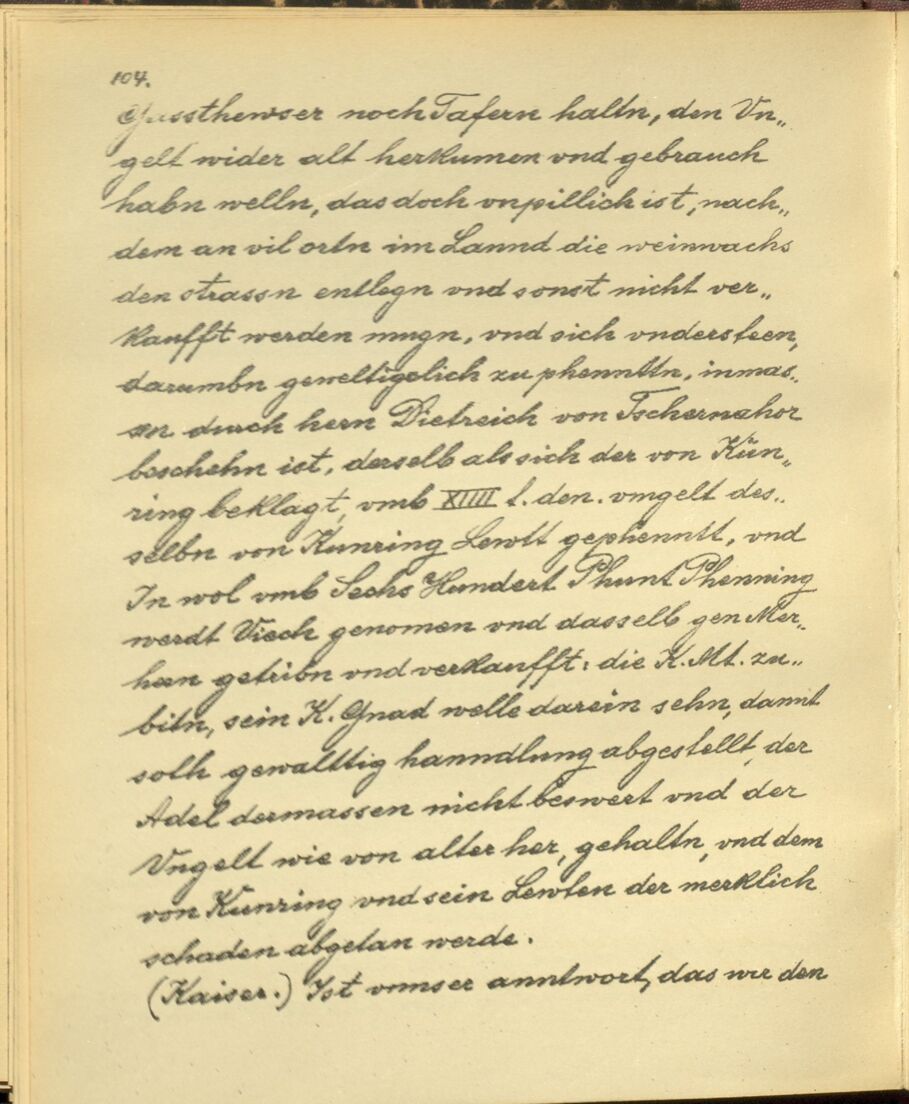 104.
Gassthewser noch Tafern haltn, den Vn„
gelt wider alt herkumen vnd gebrauch
habn welln, das doch vnpillich ist, nach„
dem an vil ortn im Lannd die weinwachs
den strassn entlegn vnd sonst nicht ver„
kaufft werden mugn, vnd sich vndersteen,
darumbn geweltigelich zu phennttn, inmas„
sn durch hern Dietreich von Tschernahor
beschehn ist, derselb als sich der von Kün„
ring beklagt, vmb XIIII t. den. vmgelt des„
selbn von Kunring Lewtt gephenntt, vnd
In wol vmb Sechs Hundert Phunt Phenning
werdt Viech genomen vnd dasselb gen Mer„
hern getribn vnd verkaufft: die K. Mt. zu„
bitn, sein K. Gnad welle darein sehn, damit
solh gewalttig hanndlung abgestellt, der
Adel dermassen nicht beswert vnd der
Vngelt wie von alter her, gehaltn, vnd dem
von Künring vnd sein Lewten der merklich
schaden abgetan werde.
(Kaiser.) Ist vnnser anntwort, das wir den